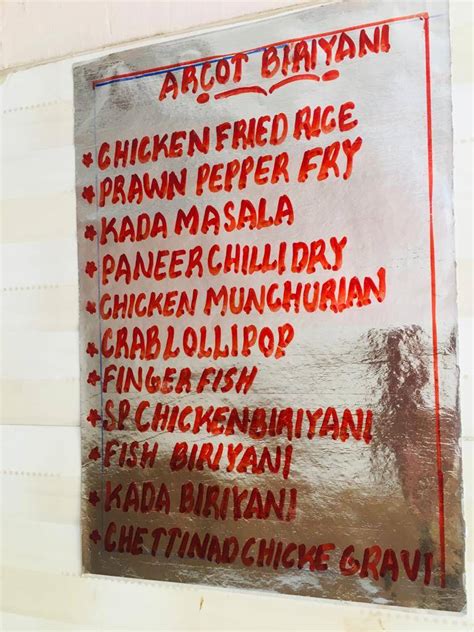 ARCOT BIRIYANI
* CHICKEN FRIED RICE
* PRAWN PEPPER FRY
* KADA MASALA
* PANEER CHILLI DRY
* CHICKEN MUNCHURIAN
* CRAB LOLLIPOP
* FINGER FISH
* SP CHICKEN BIRIYANI
* FISH BIRIYANI
* KADA BIRIYANI
* CHETTINAD CHICKE GRAVI